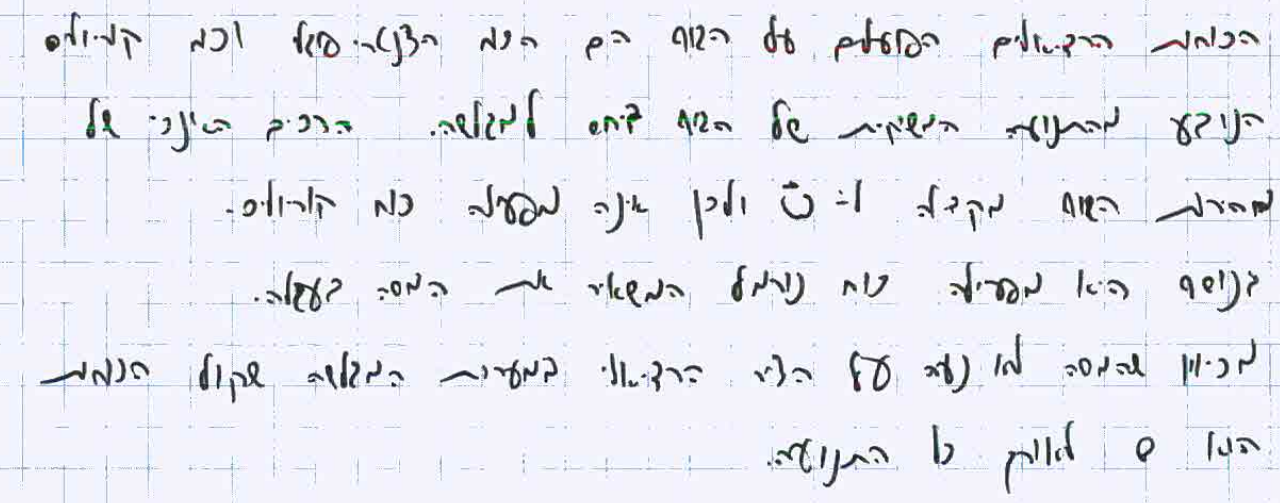 הכוחות הרדיאלים הפועלים על הגוף הם הכח הצנטריפוגלי וכח קוריוליס
הנובע מהתנועה המשיקית של הגוף ביחס למגלשה. הרכיב האנכי של
מהירות הגוף מקבילה ל- ולכן אינה מפעילה כח קוריוליס.
בנוסף היא מפעילה כוח נורמל המשאיר את המסה בעגלה.
מכיוון שהמסה לא נעה על הציר הרדיאלי במערכת המגלשה שקול הכוחות
הוא 0 לאורך כל התנועה.